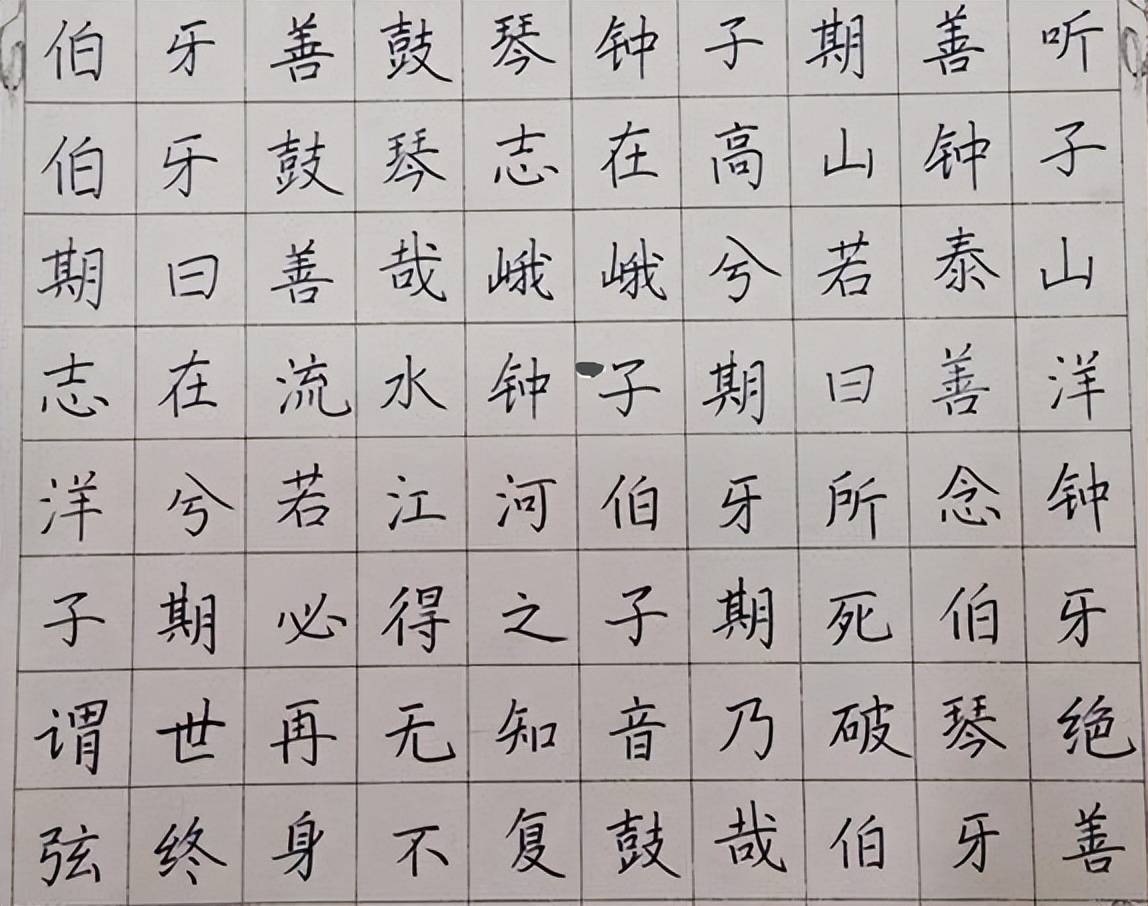 伯牙善鼓琴钟子期善听
伯牙鼓琴志在高山钟子
期曰善哉峨峨兮若泰山
志在流水钟子期曰善洋
洋兮若江河伯牙所念钟
子期必得之子期死伯牙
谓世再无知音乃破琴绝
弦终身不复鼓哉伯牙善